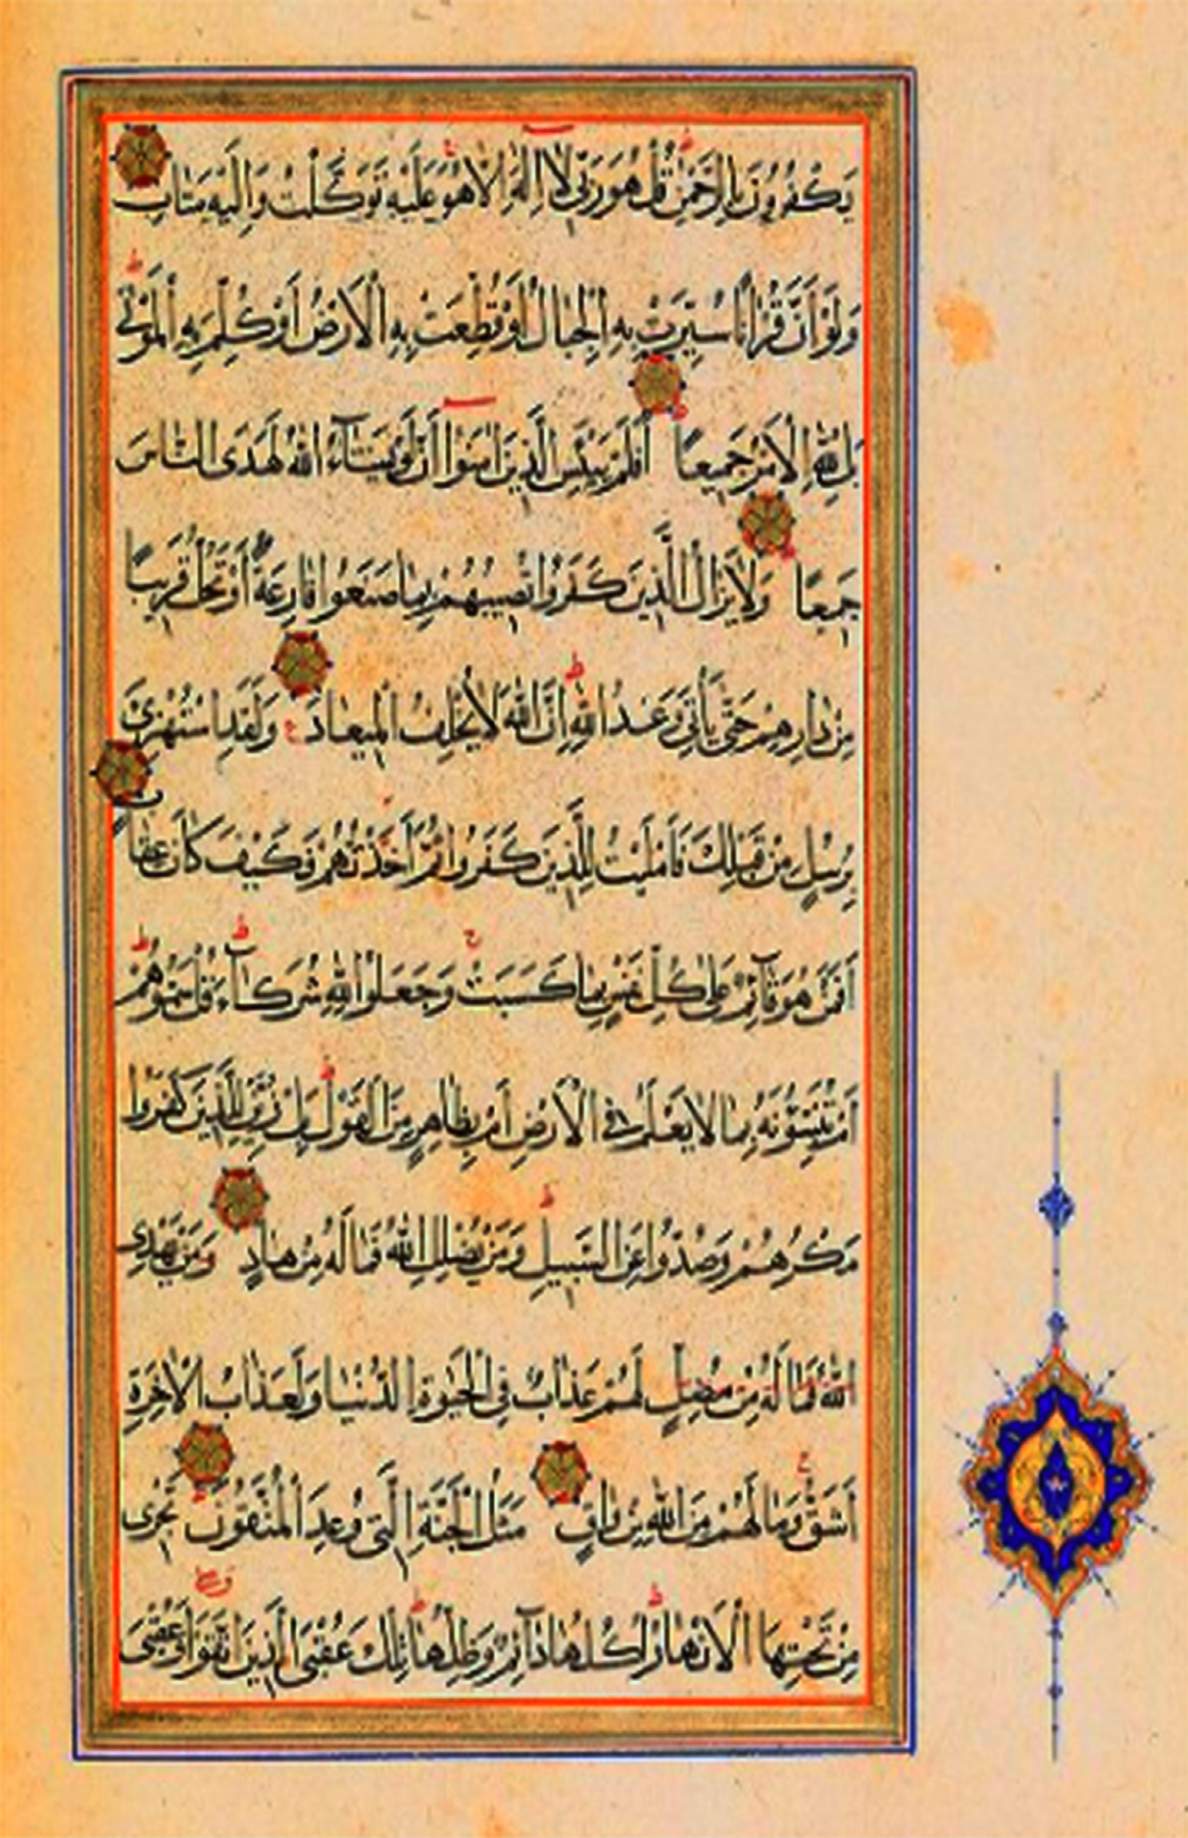 يَكْفُرُونَ بِالرَّحْمٰنِ قُلْ هُوَ رَبِّي لَا اِلٰهَ اِلَّا هُوَ عَلَيْهِ تَوَكَّلْتُ وَاِلَيْهِ مَتَابِ
وَلَوْ اَنَّ قُرْاٰنًا سُيِّرَتْ بِهِ الْجِبَالُ اَوْ قُطِّعَتْ بِهِ الْاَرْضُ اَوْ كُلِّمَ بِهِ الْمَوْتٰى
بَلْ لِلّٰهِ الْاَمْرُ جَمِيعًا اَفَلَمْ يَيْئَسِ الَّذِينَ اٰمَنُوا اَنْ لَوْ يَشَآءُ اللّٰهُ لَهَدَى النَّاسَ
جَمِيعًا وَلَا يَزَالُ الَّذِينَ كَفَرُوا تُصِيبُهُمْ بِمَا صَنَعُوا قَارِعَةٌ اَوْ تَحُلُّ قَرِيبًا
مِنْ دَارِهِمْ حَتّٰى يَأْتِيَ وَعْدُ اللّٰهِ اِنَّ اللّٰهَ لَا يُخْلِفُ الْمِيعَادَ وَلَقَدِ اسْتُهْزِئَ
بِرُسُلٍ مِنْ قَبْلِكَ فَاَمْلَيْتُ لِلَّذِينَ كَفَرُوا ثُمَّ اَخَذْتُهُمْ فَكَيْفَ كَانَ عِقَابِ
اَفَمَنْ هُوَ قَآئِمٌ عَلٰى كُلِّ نَفْسٍ بِمَا كَسَبَتْ وَجَعَلُوا لِلّٰهِ شُرَكَآءَ قُلْ سَمُّوهُمْ
اَمْ تُنَبِّئُونَهُ بِمَا لَا يَعْلَمُ فِي الْاَرْضِ اَمْ بِظَاهِرٍ مِنَ الْقَوْلِ بَلْ زُيِّنَ لِلَّذِينَ كَفَرُوا
مَكْرُهُمْ وَصُدُّوا عَنِ السَّبِيلِ وَمَنْ يُضْلِلِ اللّٰهُ فَمَا لَهُ مِنْ هَادٍ وَمَنْ يَهْدِي
اللّٰهُ فَمَا لَهُ مِنْ مُضِلٍّ لَهُمْ عَذَابٌ فِي الْحَيٰوةِ الدُّنْيَا وَلَعَذَابُ الْاٰخِرَةِ
اَشَقُّ وَمَا لَهُمْ مِنَ اللّٰهِ مِنْ وَاقٍ مَثَلُ الْجَنَّةِ الَّتِي وُعِدَ الْمُتَّقُونَ تَجْرِي
مِنْ تَحْتِهَا الْاَنْهَارُ اُكُلُهَا دَآئِمٌ وَظِلُّهَا تِلْكَ عُقْبَى الَّذِينَ اتَّقَوْا وَعُقْبَى